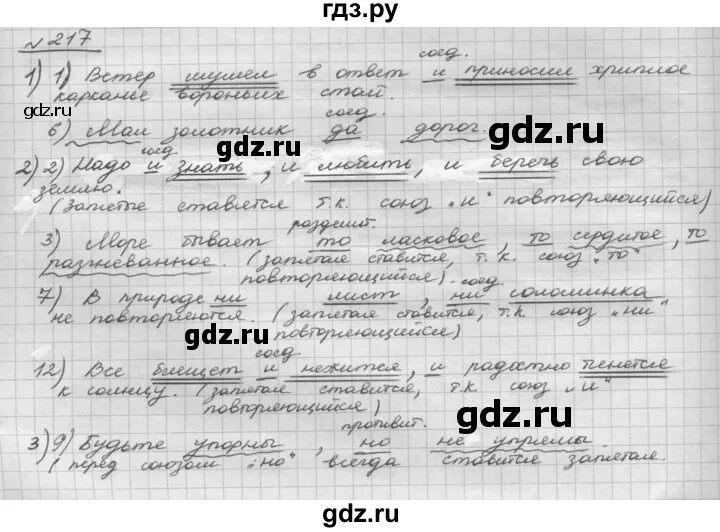 гдз.ру
№217
соед.
1) 1) Ветер шумел в ответ и приносил хриплое
карканье вороньих стай.
соед.
6) Мал золотник да дорог.
соед.
2) 2) Надо и знать, и любить, и беречь свою
землю.
(Запятые ставятся т.к. союз „и" повторяющийся)
разделит.
3) Море бывает то ласковое, то сердитое, то
разгневанное. (запятая ставится, т.к. союз „то"
повторяющийся). соед.
7) В природе ни лист, ни соломинка
не повторяются. (запятая ставится, т.к союз „ни"
повторяющийся)
соед.
12) Все блещет и нежится, и радостно тянется
к солнцу. (запятая ставится, т.к. союз „и"
повторяющийся)
противит.
3) 9) Будьте упорны, но не упрямы.
(перед союзом „но" всегда ставится запятая.
gdz.ru
gdz.ru
gdz.ru
gdz.ru
gdz.ru
gdz.ru
gdz.ru